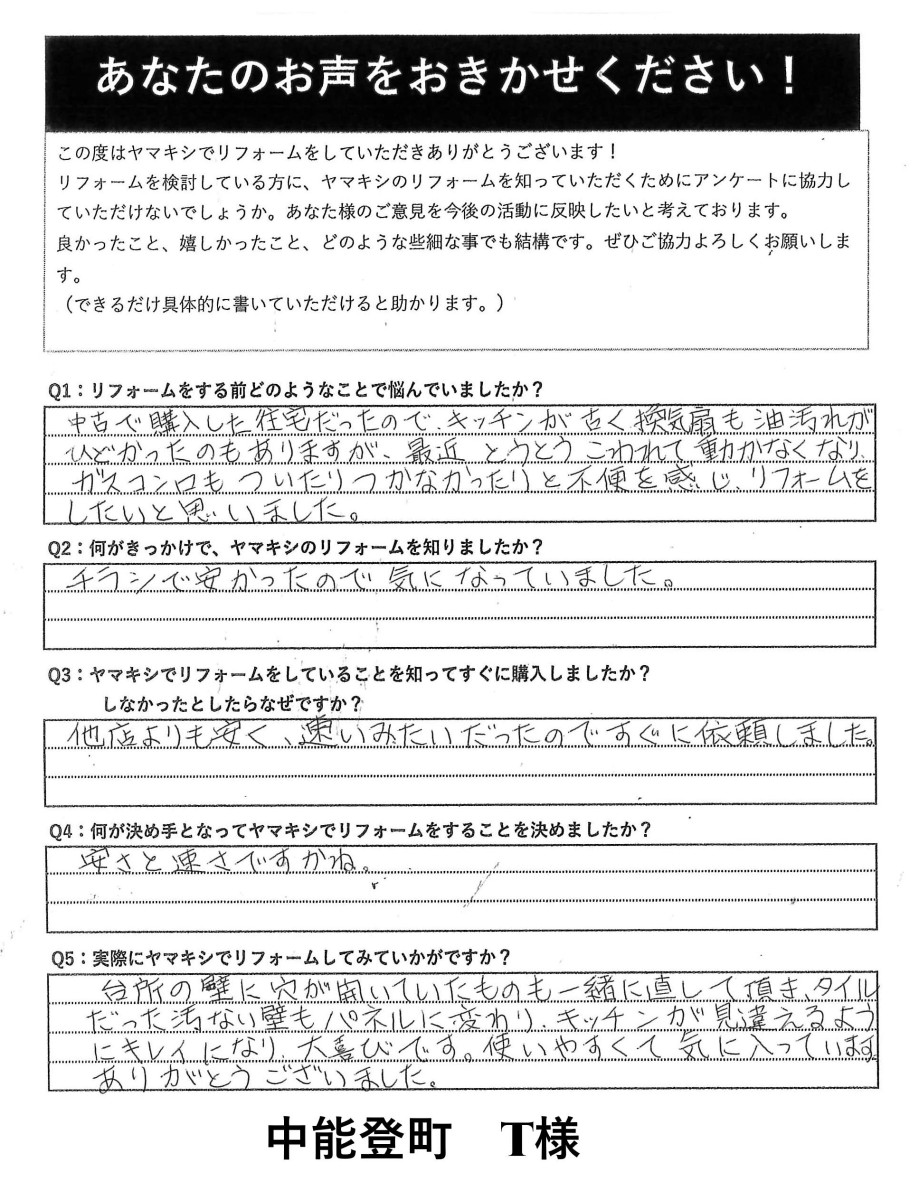 あなたのお声をおきかせください！
この度はヤマキシでリフォームをしていただきありがとうございます！
リフォームを検討している方に、ヤマキシのリフォームを知っていただくためにアンケートに協力し
ていただけないでしょうか。あなた様のご意見を今後の活動に反映したいと考えております。
良かったこと、嬉しかったこと、どのような些細な事でも結構です。ぜひご協力よろしくお願いしま
す。
（できるだけ具体的に書いていただけると助かります。）
Q1：リフォームをする前どのようなことで悩んでいましたか？
中古で購入した住宅だったので、キッチンが古く換気扇も油汚れが
ひどかったのもありますが、最近とうとうこわれて動かなくなり、
ガスコンロもついたりつかなかったりと不便を感じ、リフォームを
したいと思いました。
Q2：何がきっかけで、ヤマキシのリフォームを知りましたか？
チラシで安かったので気になっていました。
Q3：ヤマキシでリフォームをしていることを知ってすぐに購入しましたか？
しなかったとしたらなぜですか？
他店よりも安く、速いみたいだったのですぐに依頼しました。
Q4：何が決め手となってヤマキシでリフォームをすることを決めましたか？
安さと速さですかね。
Q5：実際にヤマキシでリフォームしてみていかがですか？
台所の壁に穴が開いていたものも一緒に直して頂き、タイル
だった汚ない壁もパネルに変わり、キッチンが見違えるよう
にキレイになり、大喜びです。使いやすくて気に入っています。
ありがとうございました。
中能登町　T様